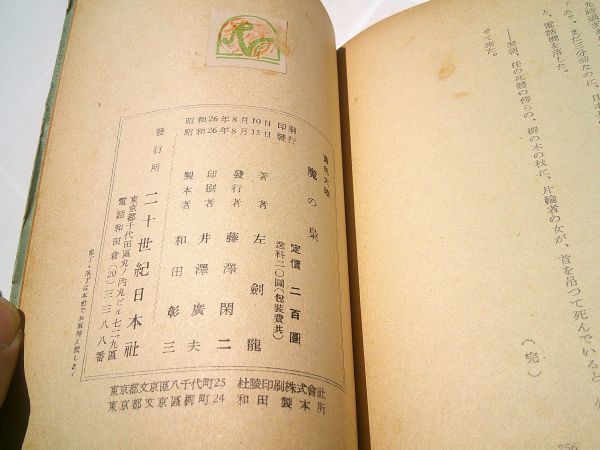 九時過ぎま
あゝ、まだ三分前なのに、日本
と、電話機を落した。
――翌朝、任の死體の傍らの、柳の木の枝に、片輪者の女が、首を吊つて死んでいると
せて来た。
（完）
昭和26年8月10日 印刷
昭和26年8月15日 發行
黄色大陸
魔の巣
定價 二百圓
送料二〇圓(包裝費共)
著者 左劍龍
發行者 藤澤閑二
印刷者 井澤廣夫
製本者 和田彰三
發行所 二十世紀日本社
東京都千代田區丸ノ内丸ビル七二九區
電話和田倉(20)三三八八番
亂丁・落丁は本社でお取替え致します
東京都文京區八千代町25 杜陵印刷株式會社
東京都文京區柳町24 和田製本所